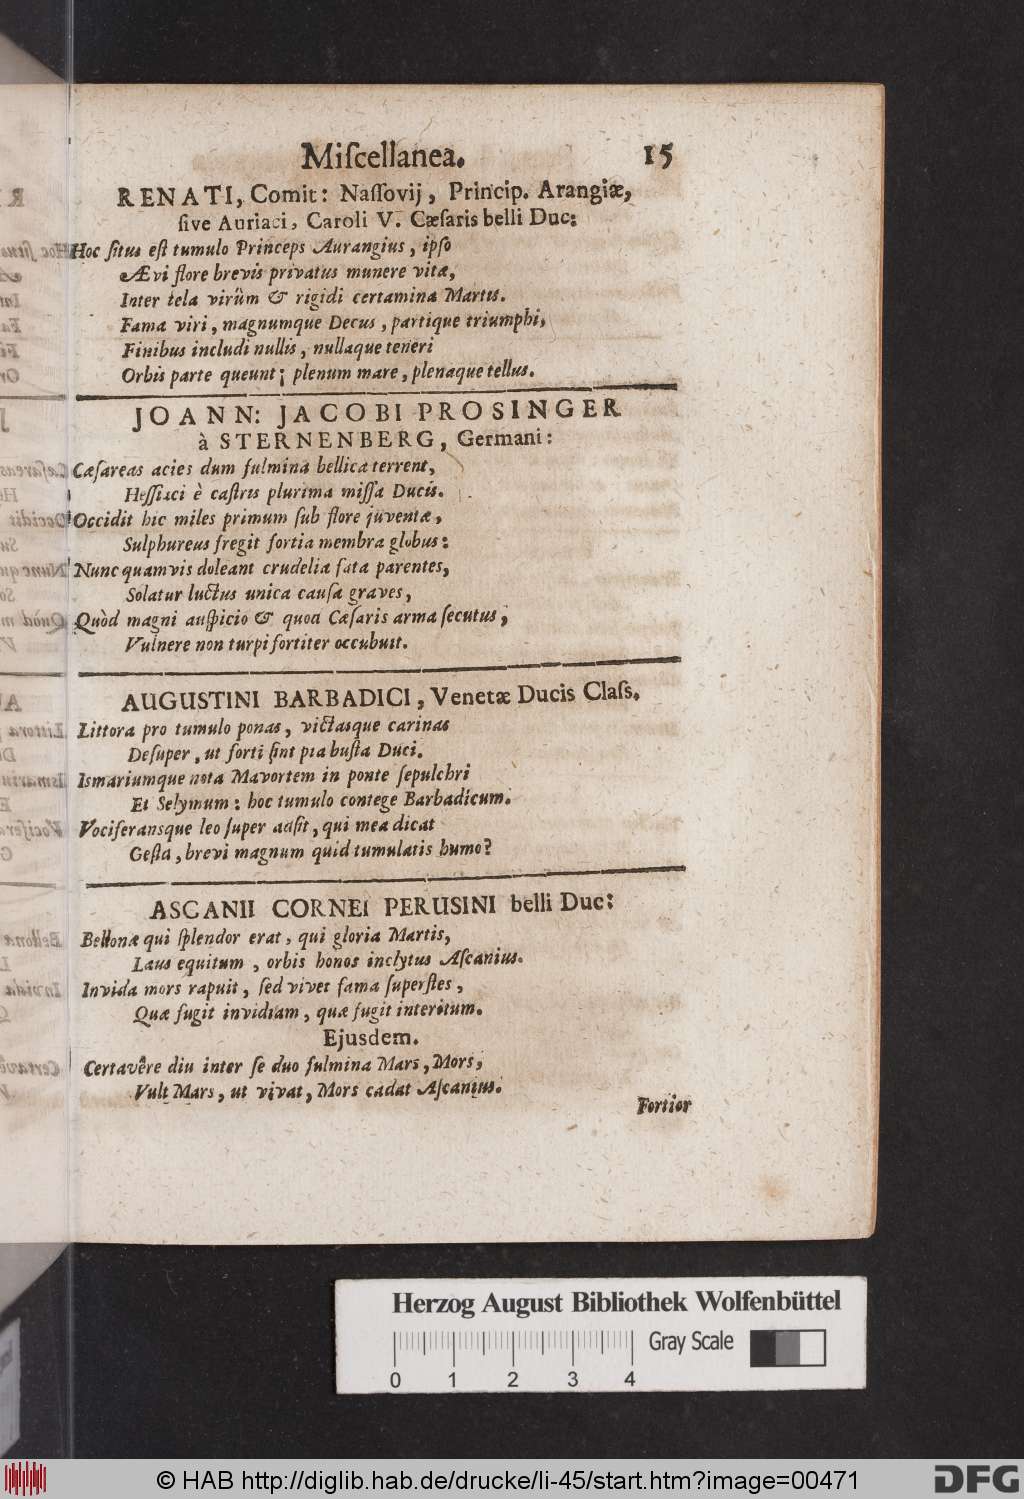 Miſcellanea. 15
RENATI, Comit: Naſſovij, Princip. Arangiæ,
ſive Auriaci, Caroli V. Cæſaris belli Duc:
Hoc ſitus eſt tumulo Princeps Aurangius, ipſo
Ævi flore brevis privatus munere vitæ,
Inter tela virûm & rigidi certamina Martis.
Fama viri, magnumque Decus, partique triumphi,
Finibus includi nullis, nullaque teneri
Orbis parte queunt; plenum mare, plenaque tellus.
JOANN: JACOBI PROSINGER
à STERNENBERG, Germani:
Cæſareas acies dum fulmina bellica terrent,
Heſſiaci è caſtris plurima miſſa Ducis.
Occidit hic miles primum ſub flore juventæ,
Sulphureus fregit fortia membra globus:
Nunc quamvis doleant crudelia fata parentes,
Solatur luctus unica cauſa graves,
Quòd magni auſpicio & quod Cæſaris arma ſecutus,
Vulnere non turpi fortiter occubuit.
AUGUSTINI BARBADICI, Venetæ Ducis Claſs.
Littora pro tumulo ponas, victasque carinas
Deſuper, ut forti ſint pia buſta Duci.
Ismariumque nota Mavortem in ponte ſepulchri
Et Selymum: hoc tumulo contege Barbadicum.
Vociferansque leo ſuper adſit, qui mea dicat
Geſta, brevi magnum quid tumulatis humo?
ASCANII CORNEI PERUSINI belli Duc:
Bellonæ qui ſplendor erat, qui gloria Martis,
Laus equitum, orbis honos inclytus Aſcanius.
Invida mors rapuit, ſed vivet fama ſuperſtes,
Quæ fugit invidiam, quæ fugit interitum.
Ejusdem.
Certavêre diu inter ſe duo fulmina Mars, Mors,
Vult Mars, ut vivat, Mors cadat Aſcanius.
Fortior
Herzog August Bibliothek Wolfenbüttel
Gray Scale
0 1 2 3 4
© HAB http://diglib.hab.de/drucke/li-45/start.htm?image=00471
DFG